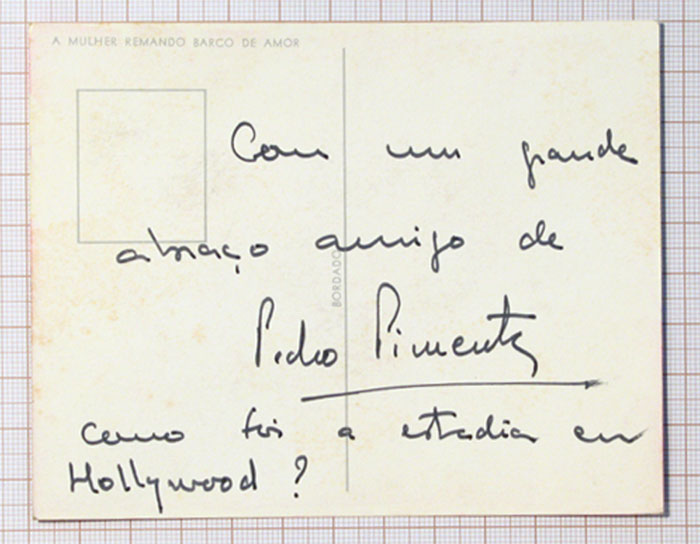 A MULHER REMANDO BARCO DE AMOR
Com um grande
abraço amigo de
BORDADO
Pedro Pimenta
Como foi a estadia em
Hollywood ?